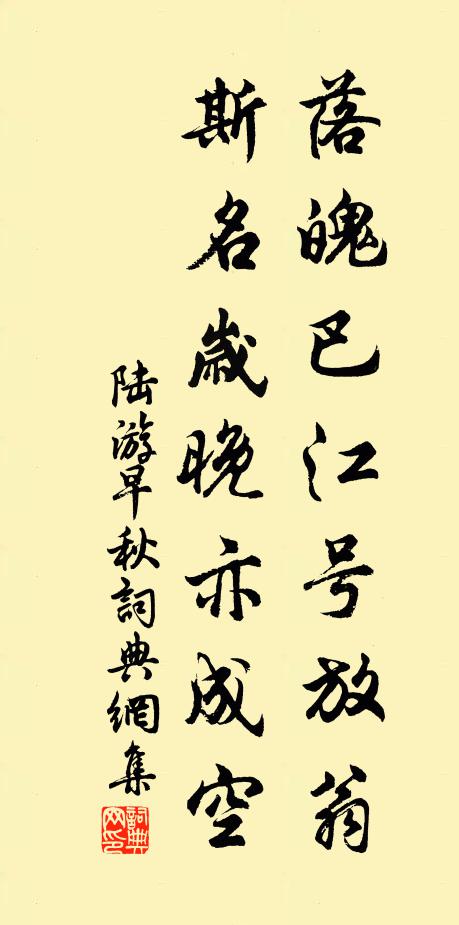 落魄巴江号放翁
斯名岁晚亦成空
陆游早秋詞典網集
詞典网印